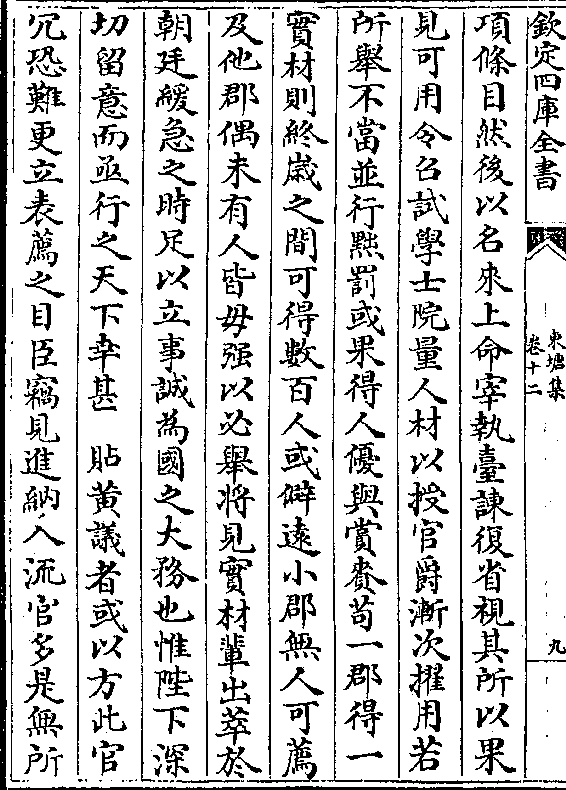 欽定四庫全書
東塘集
卷十二
九
項條目然後以名來上命宰執臺諫復省視其所以果
見可用令召試學士院量人材以授官爵漸次擢用若
所舉不當並行黜罰或果得人優與賞賚苟一郡得一
實材則終歳之間可得數百人或僻遠小郡無人可薦
及他郡偶未有人皆毋强以必舉将見實材輩出萃於
朝廷緩急之時足以立事誠為國之大務也惟陛下深
切留意而亟行之天下幸甚 貼黄議者或以方此官
冗恐難更立表薦之目臣竊見進納入流官多是無所